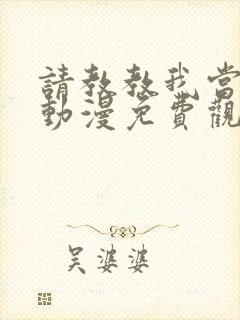 請教教我當
動漫免費觀
吴婆婆